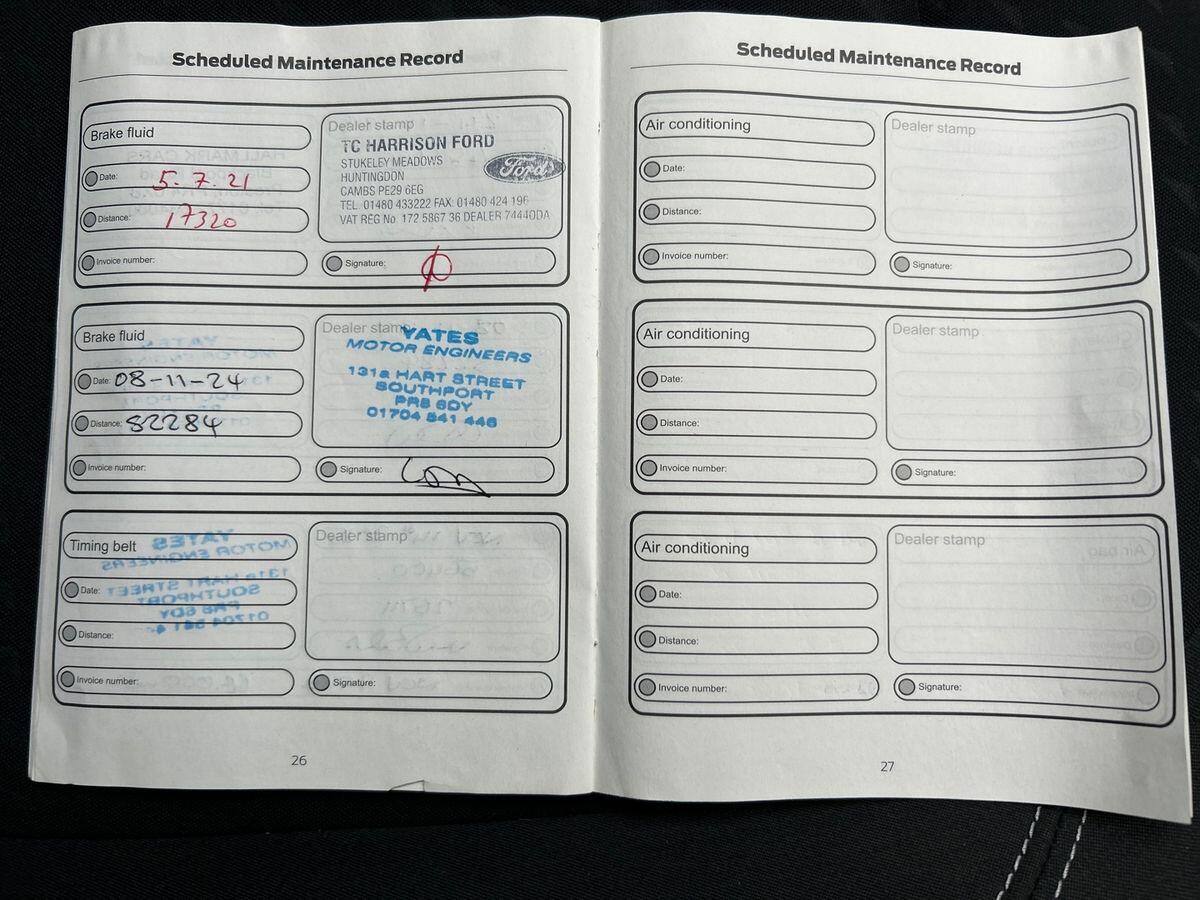 Scheduled Maintenance Record
Brake fluid
Date: 5.7.21
Distance: 17320
Invoice number:
Dealer stamp
TC HARRISON FORD
STUKELEY MEADOWS
HUNTINGDON
CAMBS PE29 6EG
TEL. 01480 433222 FAX: 01480 424 196
VAT REG No 172 5867 36 DEALER 74440DA
Ford
Signature:
Brake fluid
Date: 08-11-24
Distance: 82284
Invoice number:
Dealer stamp
YATES
MOTOR ENGINEERS
131a HART STREET
SOUTHPORT
PR8 6DY
01704 541 446
Signature:
Timing belt
Date:
Distance:
Invoice number:
Dealer stamp
Signature:
26
Scheduled Maintenance Record
Air conditioning
Date:
Distance:
Invoice number:
Dealer stamp
Signature:
Air conditioning
Date:
Distance:
Invoice number:
Dealer stamp
Signature:
Air conditioning
Date:
Distance:
Invoice number:
Dealer stamp
Signature:
27